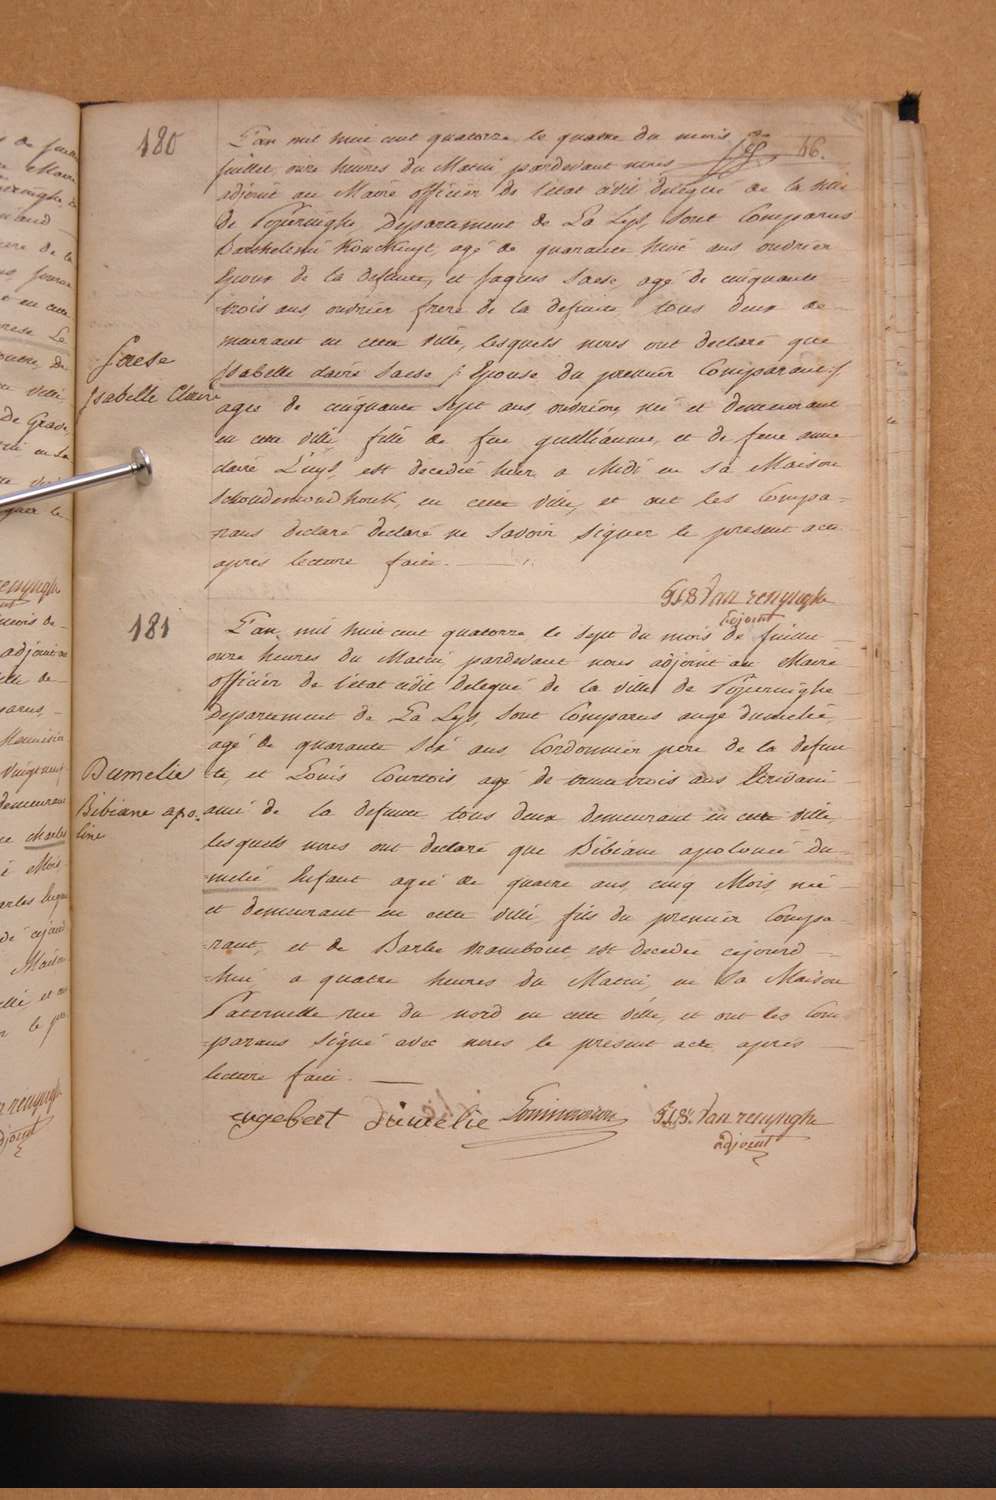 180
L'an mil huit cent quatorze le quatre du mois de
46.
juillet, onze heures du Matin pardevant nous
adjoint au Maire officier de l'etat civil delegué de la ville
de Poperinghe, Departement de La Lys, sont Comparus
Barthelemi Kouckuyt, agé de quarante huit ans ouvrier
Epoux de la defunte, et Jaques Saese, agé de cinquante
trois ans, ouvrier frere de la defunte, tous deux de-
meurant en cette ville, lesquels nous ont declaré que
Saese
Isabelle Claire
Isabelle claire Saese /: Epouse du premier Comparant:/
agee de cinquante sept ans ouvriere, né et demeurant
en cette ville, fille de feu guilliaume, et de feue anne
claire Luys, est decedée hier a Midi en sa Maison
Schoudemondhouk, en cette ville, et ont les Compa-
rans declaré declaré ne savoir signer le present acte
apres lecture faite.
F J B Van renynghe
adjoint
181
L'an mil huit cent quatorze le sept du mois de Juillet
onze heures du Matin, pardevant nous adjoint au Maire
officier de l'etat civil delegué de la ville de Poperinghe
departement de La Lys, sont Comparus ange dumelié,
agé de quarante six ans Cordonnier pere de la defun
Dumelie
te, et Louis Courtois, agé de trente trois ans Ecrivain
Bibiane apo-
line
amé de la defunte tous deux demeurant en cette ville,
lesquels nous ont declaré que Bibiane apolonié du-
melié Enfant ageé de quatre ans, cinq Mois, né
et demeurant en cette ville, fils du premier Compa-
rant, et de Barbe Arambout est decedée cejourd-
hui a quatre heures du Matin, en Sa Maison
Paternelle rue du nord en cette ville, et ont les Com
parans signé avec nous le present acte après
lecture faite.
engebert Dumelie
F J B. Van renynghe
adjoint